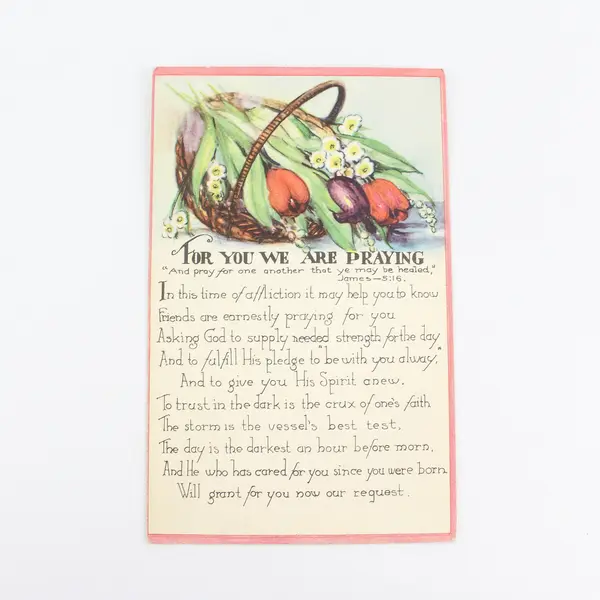 FOR YOU WE ARE PRAYING
"And pray for one another that ye may be healed,"
James—5:16.
In this time of affliction it may help you to know
Friends are earnestly praying for you
Asking God to supply needed strength for the day
And to fulfill His pledge to "be with you alway,"
And to give you His Spirit anew.
To trust in the dark is the crux of one's faith
The storm is the vessel's best test,
The day is the darkest an hour before morn,
And He who has cared for you since you were born
Will grant for you now our request.